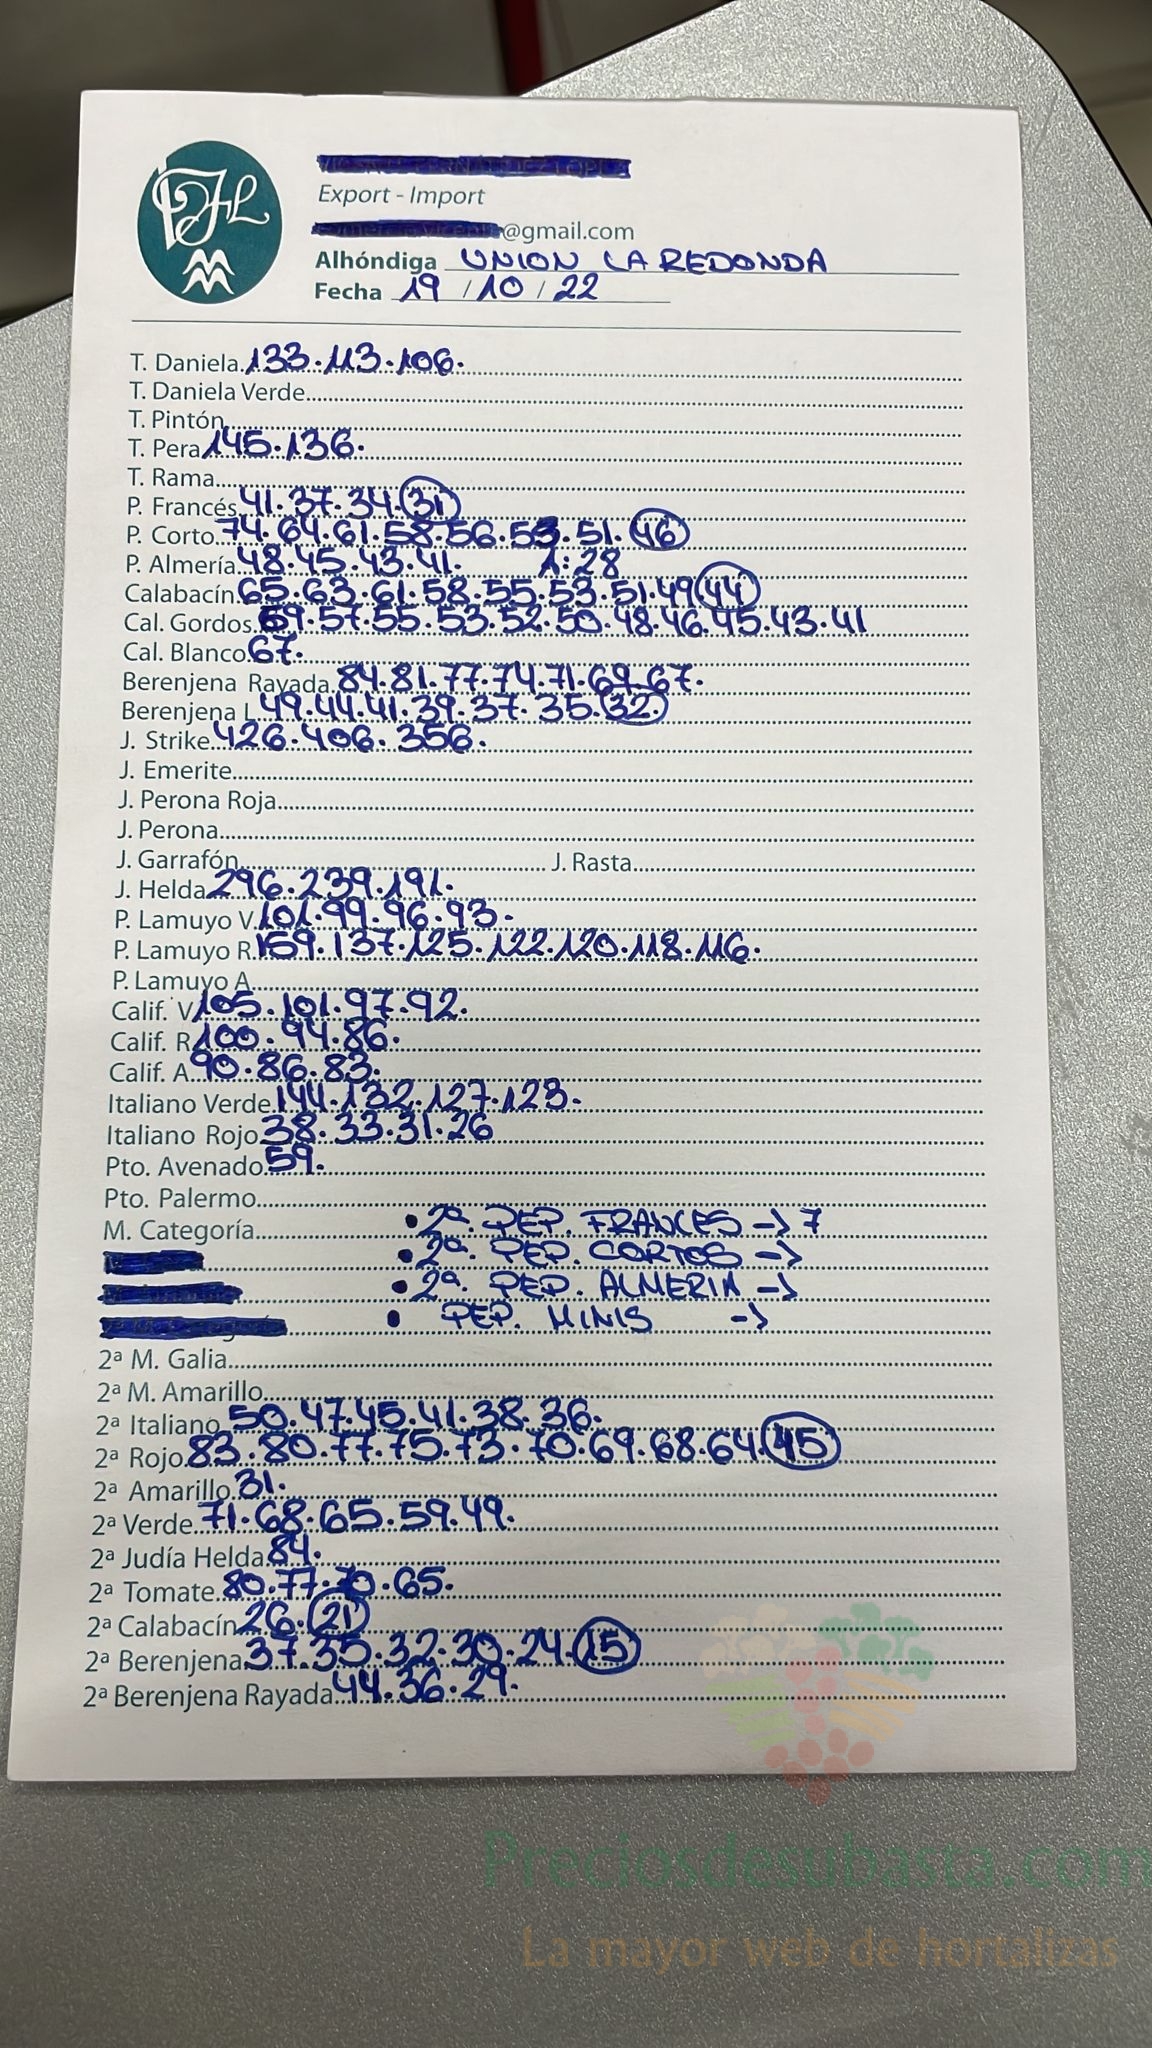 Export - Import
@gmail.com
Alhóndiga UNION LA REDONDA
Fecha 19 / 10 / 22
T. Daniela. 133.113.106.
T. Daniela Verde
T. Pintón
T. Pera 145.136.
T. Rama
P. Francés 41.37.34.31
P. Corto 74.64.61.58.56.53.51.46
P. Almería 48.45.43.41. 1:28
Calabacín 65.63.61.58.55.53.51.49.44
Cal. Gordos 59.57.55.53.52.50.48.46.45.43.41
Cal. Blanco 67.
Berenjena Rayada 84.81.77.74.71.69.67.
Berenjena L 49.44.41.39.37.35.32
J. Strike 426.406.356.
J. Emerite
J. Perona Roja
J. Perona
J. Garrafón J. Rasta
J. Helda 296.239.191.
P. Lamuyo V. 101.99.96.93.
P. Lamuyo R. 159.137.125.122.120.118.116.
P. Lamuyo A
Calif. V 105.101.97.92.
Calif. R 100.94.86.
Calif. A 90.86.83.
Italiano Verde 144.132.127.123.
Italiano Rojo 38.33.31.26
Pto. Avenado 59.
Pto. Palermo
M. Categoría • 2ª. PEP. FRANCES -> 7
• 2ª. PEP. CORTOS ->
• 2ª. PEP. ALMERIA ->
• PEP. MINIS ->
2ª M. Galia
2ª M. Amarillo
2ª Italiano 50.47.45.41.38.36.
2ª Rojo 83.80.77.75.73.70.69.68.64.45
2ª Amarillo 31.
2ª Verde 71.68.65.59.49.
2ª Judía Helda 84.
2ª Tomate 80.77.70.65.
2ª Calabacín 26.21
2ª Berenjena 37.35.32.30.24.15
2ª Berenjena Rayada 44.36.29.
Preciosdesubasta.com
La mayor web de hortalizas